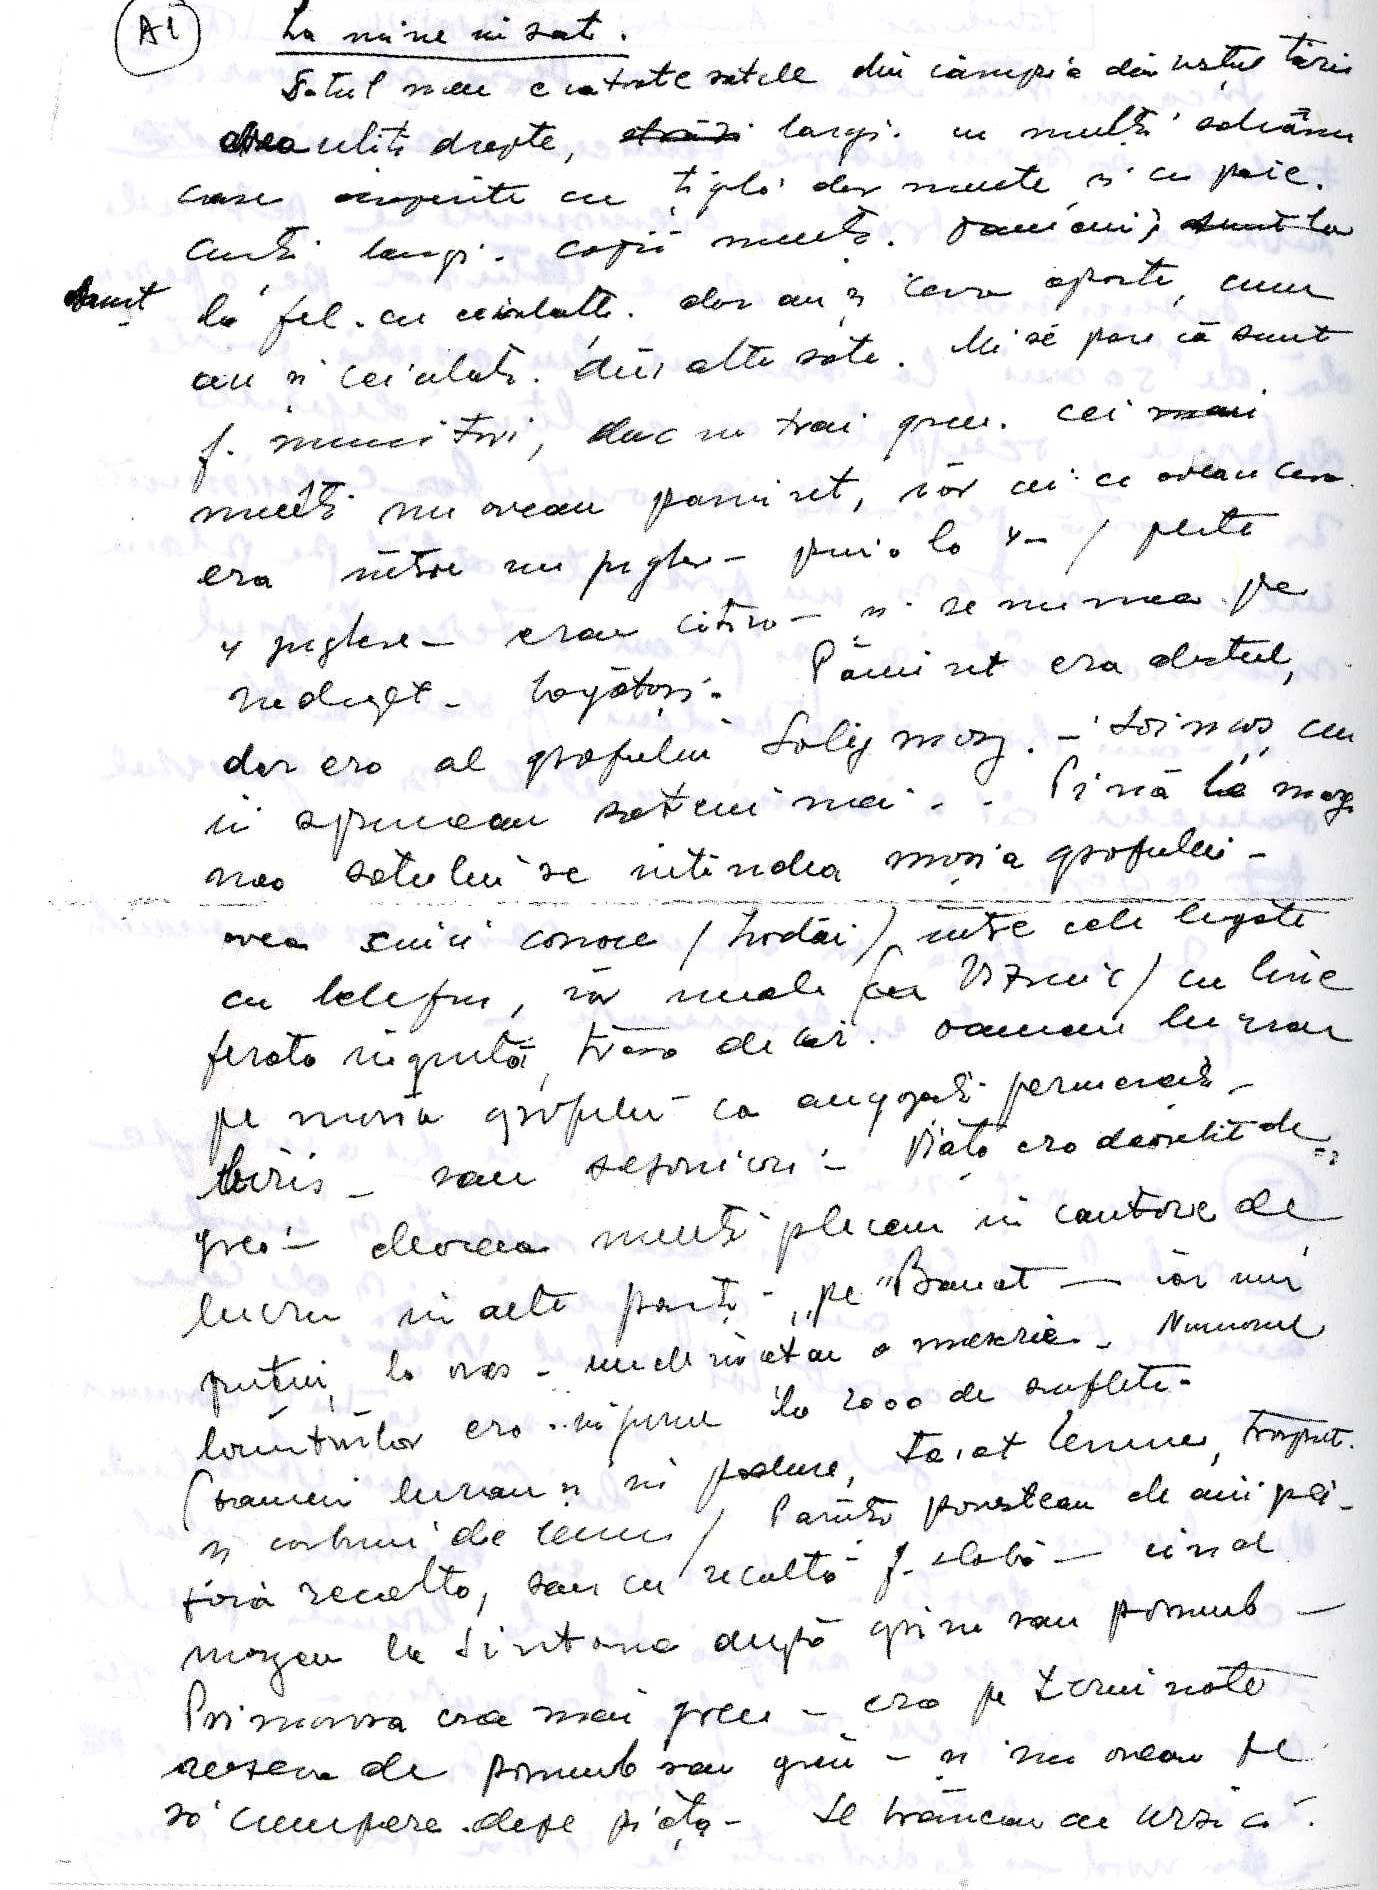 A1
La mine în sat.
Satul meu e ca toate satele din câmpia din vestul țării
avea uliți drepte, largi. cu mulți salcâmi
case acoperite cu țiglă dar multe și cu paie.
Curți largi. copii mulți. Oamenii
sunt la fel cu ceilalți. dar au și ceva aparte, cum
au și ceilalți din alte sate. Mi se pare că sunt
f. muncitori, duc un trai greu. Cei mai
mulți nu aveau pamînt, iar cei ce aveau ceva
era între un jugher – pînă la 4 – / peste
4 jughere – erau cîțiva – și se numeau pe
nedrept – bogătași. Pămînt era destul,
dar era al grofului Solymosy. – Șoimoș cum
îi spuneau sătenii mei. Pînă la margi
nea satului se întindea moșia grofului –
avea cinci conace / hodăi / între ele legate
cu telefon, iar unele / cu / cu linie
ferată îngustă, trasă de cai. Oamenii lucrau
pe moșia grofului ca angajați permanenți –
biriș – sau sezonieri – Viața era deosebit de
grea – deaceea mulți plecau în cautare de
lucru în alte părți – „pe Banat" – iar unii
puțini, la oraș – unde învățau o meserie. Numarul
locuitorilor era în jurul la 2000 de suflete.
(oamenii lucrau și în padure, taiat lemne, transport.
și carbuni de lemn / Parinții povesteau de anii răi –
fără recolta, sau cu recoltă f. slabă – cînd
mergeau la Sîntana după grîne sau porumb –
Primavara era mai greu – era pe terminate
rezerva de porumb sau grîu – și nu aveau pe
să cumpere depe piața – Se hrăneau cu urzici.